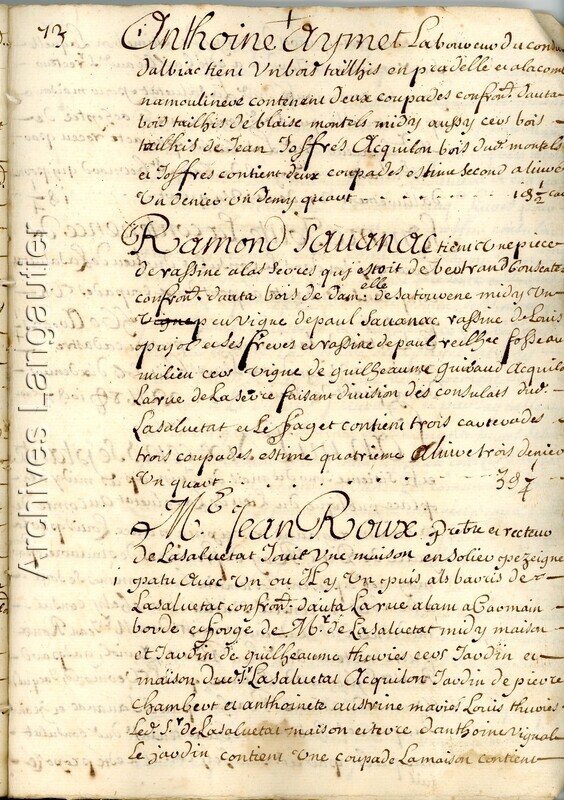 73
Anthoine Aymet Laboureur du
dalbiac tient Un bois tailhis en pradelle et a la
namoulineve contenent deux coupades confront. dauta
bois tailhis de blaise montels midy aussy cers bois
tailhis de Jean Joffres Acquilon bois dud. montels
et Joffres contient deux coupades estime second alivre
Un denier Un demy quart . . . . . .
Ramond Savanac tient Une piece
de rassine a las serres quj estoit de bertrand
confront. dauta bois de dam.elle de satourene midy Un
peu Vigne de paul Savanac, rassine de Louis
pujol et ses freres et rassine de paul reilhes fosse au
milieu cers Vigne de guilheaume guiraud Acquilo
La rue de La serre faisant division des consulats dud.
Lasalvetat et Le faget contient trois carterades
trois coupades estime quatrieme alivre trois denier
Un quart . . . . . . 3 d 1/4
M.e Jean Roux prebtre et recteur
de Lasalvetat Jouit Une maison en solier
patu avec Un ou Il y Un puis als barris de
Lasalvetat confront. dauta La rue
borde et forge de M.r de Lasalvetat midy maison
et Jardin de guilheaume thuries cers Jardin et
maison dud. s.r Lasalvetat Acquilon Jardin de pierre
Chambert et anthoinete austrine maries Louis thuries
Led. S.r de Lasalvetat maison et terre d'anthoine Vignal
Le jardin contient Une coupade La maison contient
1
Archives Langautier